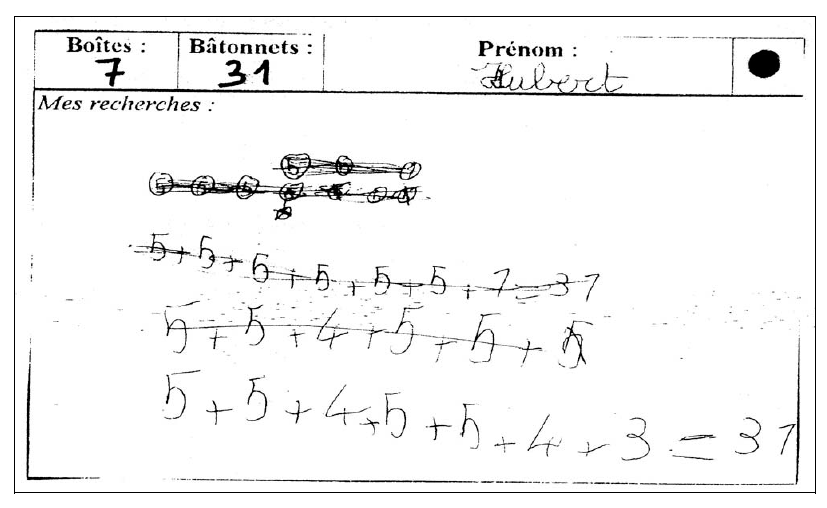 Boîtes : Bâtonnets : Prénom :
7 31 Hubert
Mes recherches :
5 + 5 + 5 + 5 + 5 + 5 + 1 = 31
5 + 5 + 4 + 5 + 5 + 5
5 + 5 + 4 + 5 + 5 + 4 + 3 = 31